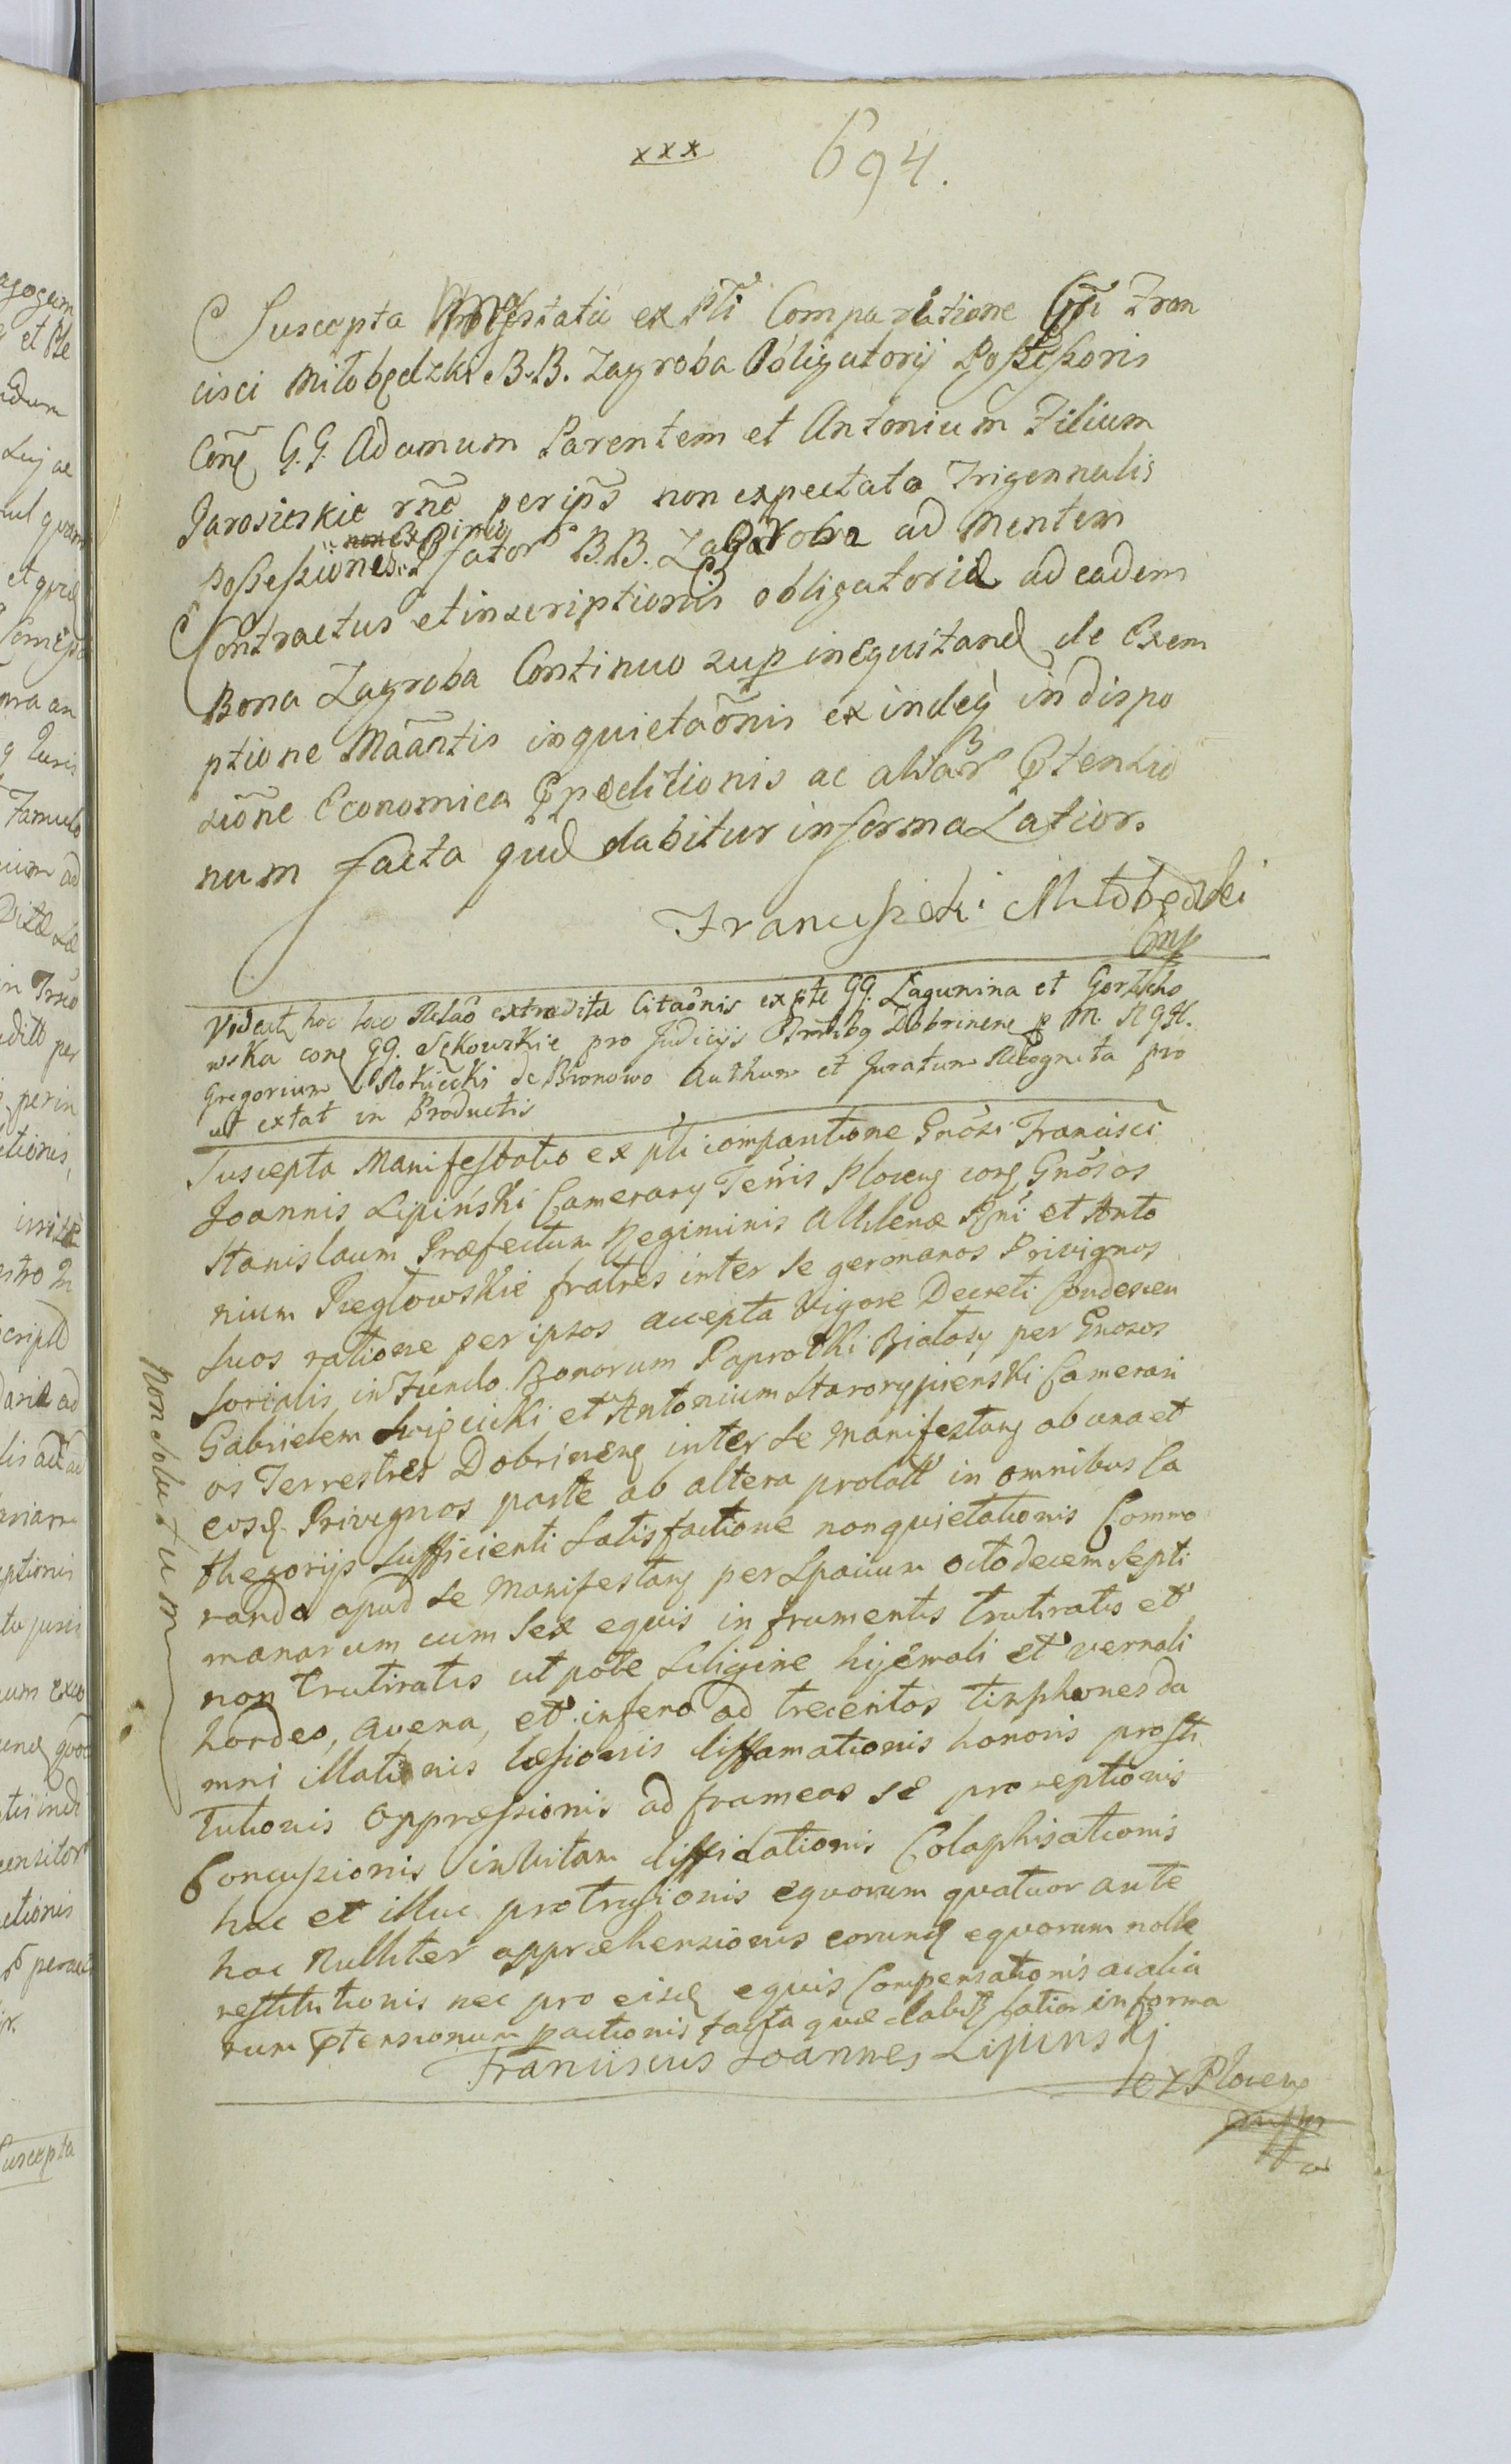 xxx 694.
Suscepta Mnfstatio ex Pti Comparitione Gsi Fran
cisci Miłobędzki B.B. Zagroba Obligatorij Possessoris
Conq G.G. Adamum Parentem et Antonium Filium
Jarosieskie rñe per ipŝ non expectata Trigennalis
non Expiratia
Possessiones fator B.B. Zagroba ad Mentem
Contractus et inscriptionis obligatoriæ ad eadem
Bona Zagroba Continuo sup inequitand de Exem
ptione Maãntis inquietaõnis exindeq indispo
sioñe Economica Expeditionis ac aliar Ptensio
num facta quæ dabitur in forma Latior.
Franciszek Miłobędzki
mp
Videatz hoc loco Relaõ extraditæ Citaõnis ex pte GG. Łagunina et Gorzecho
wska conq GG. Sękowskie pro Judicijs Dobrinens p M. R G H.
Gregorium Rokicki de Bronowo Authum et Juratum Recognita pro
ut extat in Productis
Suscepta Manifestatio ex pti comparitione Gnosi Francisci
Joannis Lipiński Camerary Terris Plocens conq Gnosos
Stanislaum Præfectum Regiminis Rni et Anto
nium Pręgłowskie fratres inter se germanos Privignos
suos ratione per ipsos accepta Vigore Decreti Condescen
sorialis in Fundo Bonorum Paprotki Białasy per Gnosos
Gabrielem Święcicki et Antonium Starorypienski Camerari
os Terrestres Dobrinens inter se Manifestans ab una et
eosq Privignos parte ab altera prolati in omnibus Ca
thegorijs sufficienti satisfactione non quietationis Commo
randa apud se Manifestans per Spacium octodecem Septi
manarum cum sex equis in frumentis trutiratis et
non trutiratis utpote siligine hijemali et vernali
hordeo, avena, et infeno ad trecentos tinphones da
mni illationis læsionis diffamationis honoris prosti
tutionis Oppressionis ad frameas se proreptionis
Concussionis in vitam diffidationis Colaphisationis
huc et illuc protrusionis equorum quatuor ante
hac Nulliter appræhensionis eorunq equorum nolle
restitutionis nec pro eisq equis Compensationis ac alia
rum Ptensionum pactionis facta quæ dabitz latior in forma
Franciscus Joannes Lipinski
Plocens
Non solutum